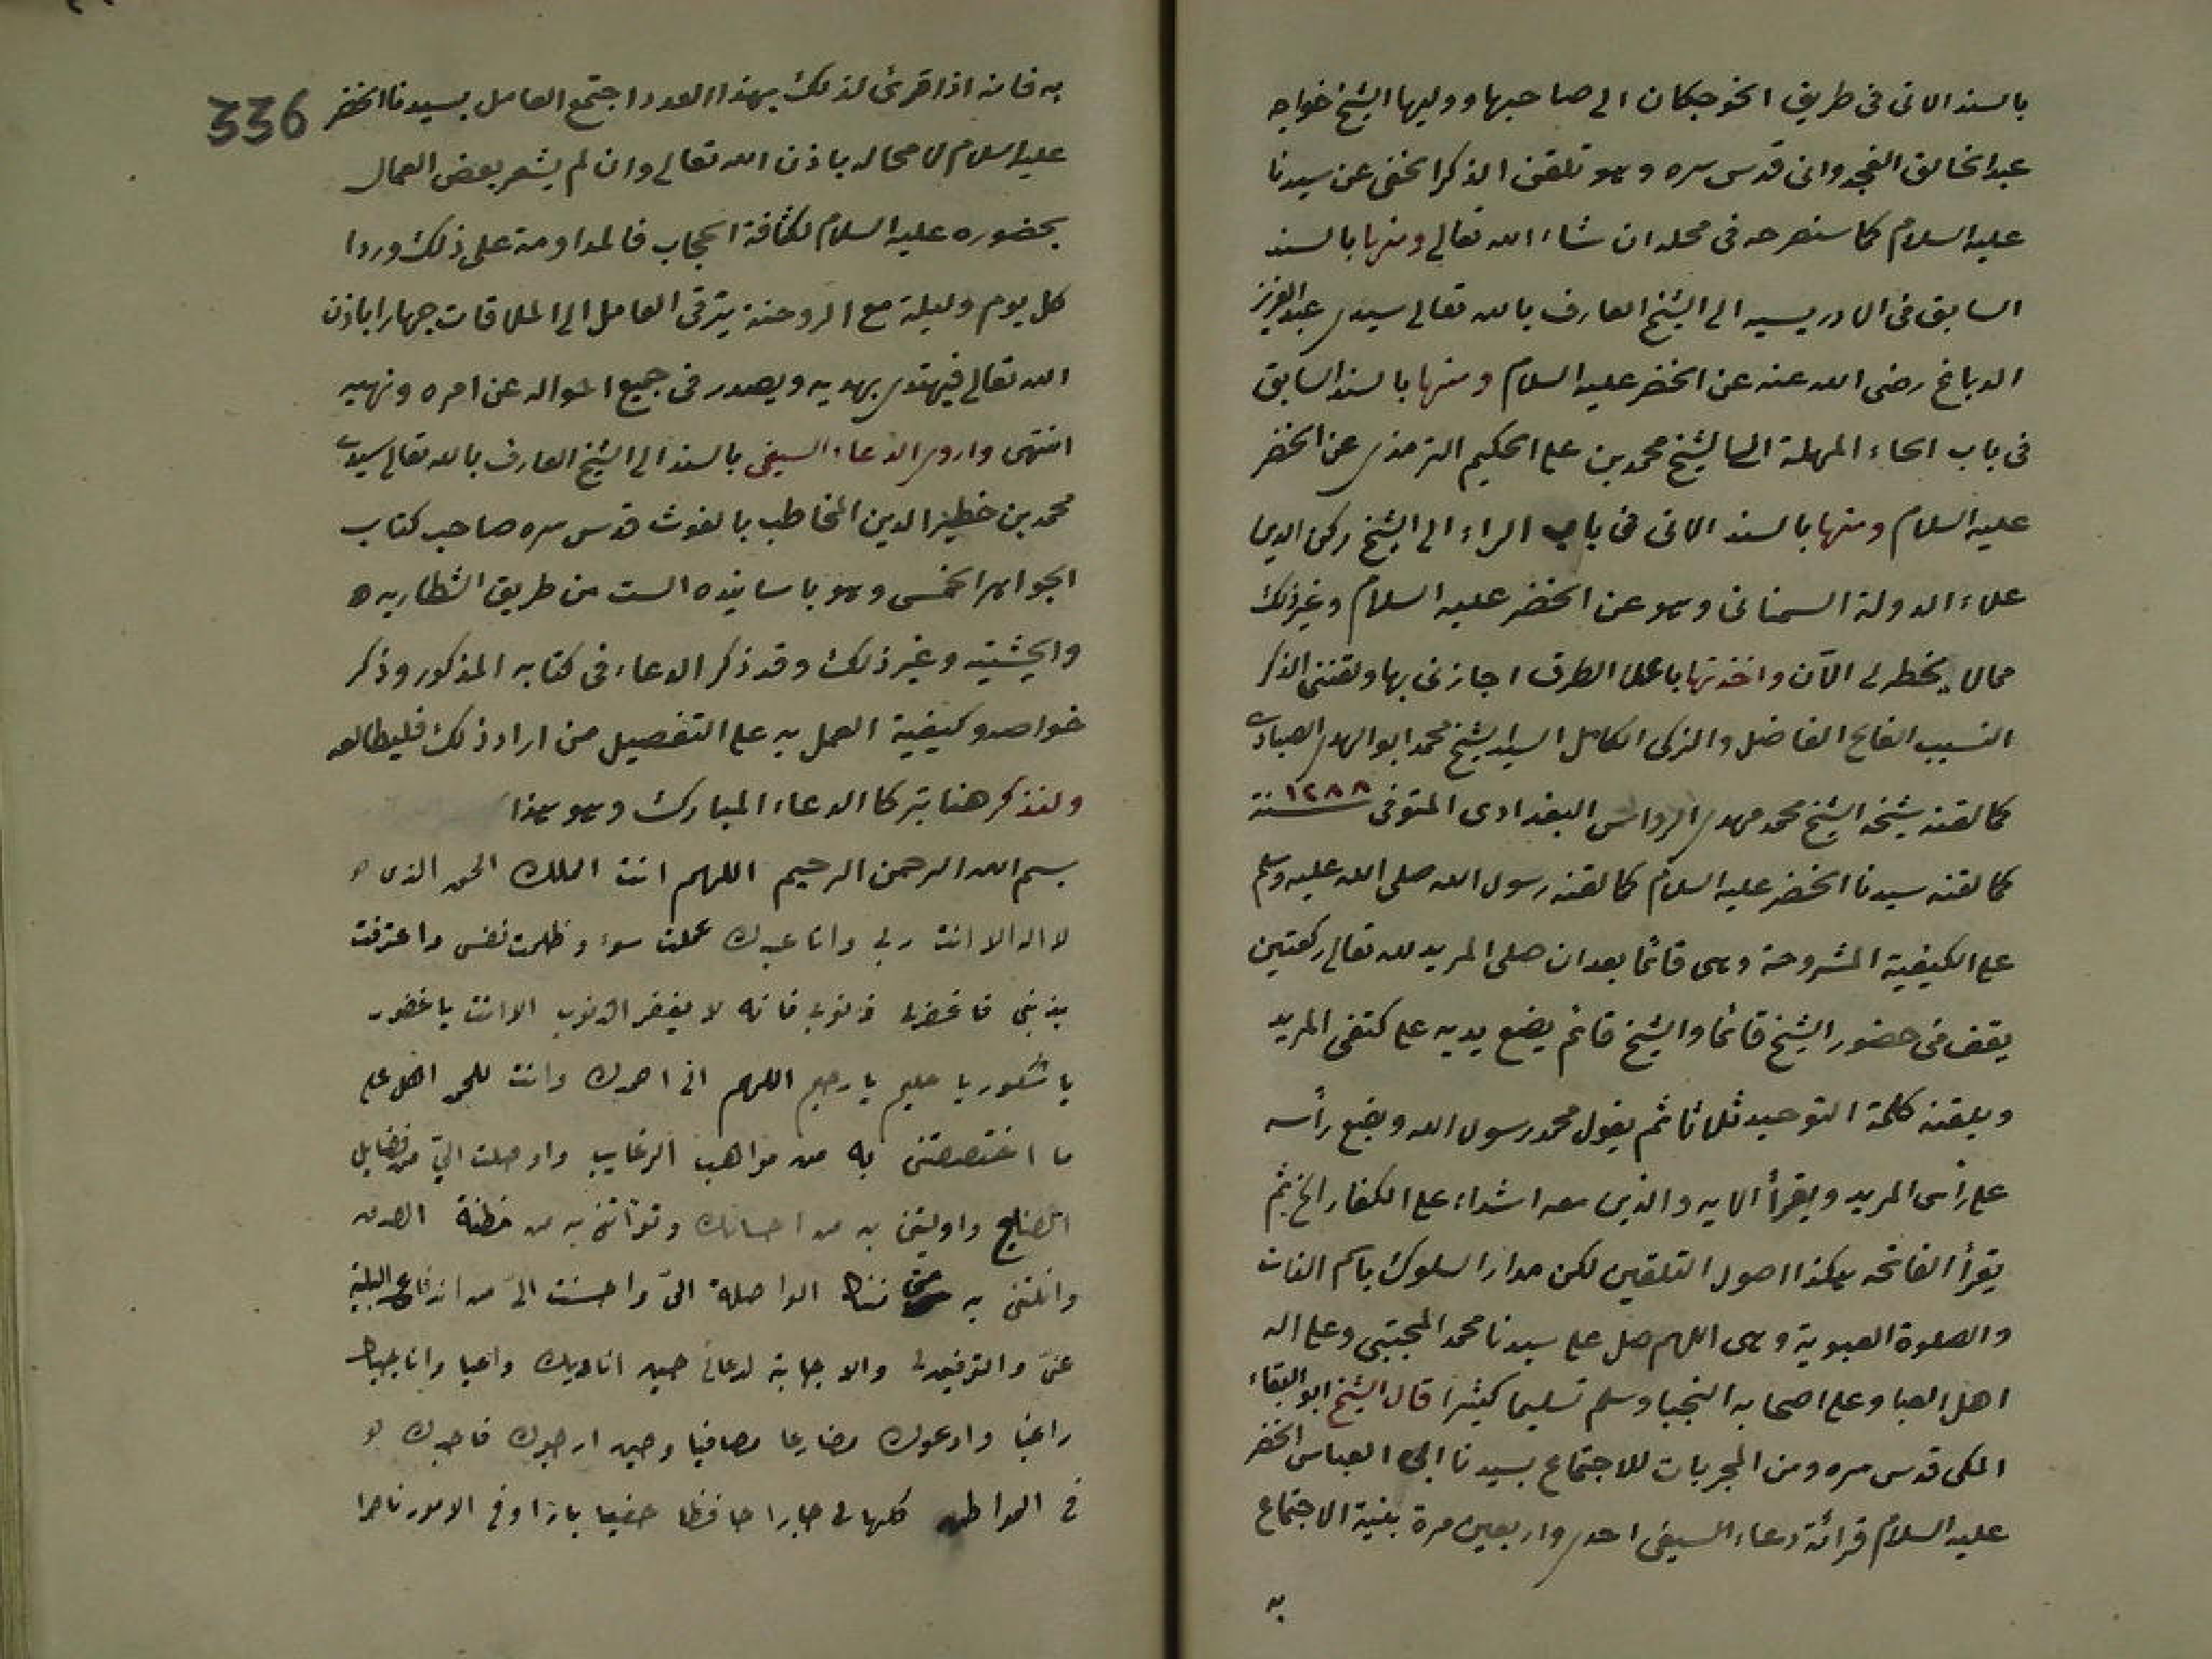 بالسند الاتى فى طريق الخوجكان الى صاحبها ووليها الشيخ خواجه
عبد الخالق الغجدوانى قدس سره وهو تلقن الذكر الخفى عن سيدنا
عليه السلام كما سنصرحه فى محله ان شاء الله تعالى ومنها بالسند
السابق فى الادريسيه الى الشيخ العارف بالله تعالى سيدى عبد العزيز
الدباغ رضى الله عنه عن الخضر عليه السلام ومنها بالسند السابق
فى باب الحاء المهملة الى الشيخ محمد بن على الحكيم الترمذى عن الخضر
عليه السلام ومنها بالسند الاتى فى باب الراء الى الشيخ ركن الدين
علاء الدولة السمنانى وهو عن الخضر عليه السلام وغير ذلك
مما لا يخطر لى الآن واخذتها باعلا الطرق اجازنى بها ولقننى الذكر
النسيب الفاضل والزكى الكامل السيد الشيخ محمد ابو الهدى الصيادى
كما لقنه شيخه الشيخ محمد مهدى الرواس البغدادى المتوفى سنة ١٢٨٨
كما لقنه سيدنا الخضر عليه السلام كما لقنه رسول الله صلى الله عليه وسلم
على الكيفية المشروحة وهى قائما بعد ان صلى المريد لله تعالى ركعتين
يقف فى حضور الشيخ قائما والشيخ قائم يضع يديه على كتفى المريد
ويلقنه كلمة التوحيد ثلاثا ثم يقول محمد رسول الله ويضع رأسه
على رأس المريد ويقرأ الايه والذين معه اشداء على الكفار الخ ثم
يقرأ الفاتحه هكذا اصول التلقين لكن مدار السلوك باسم الذات
والصلوة العبوية وهى اللهم صل على سيدنا محمد المجتبى وعلى اله
اهل العبا وعلى اصحابه النجبا وسلم تسليما كثيرا قال الشيخ ابو البقاء
المكى قدس سره ومن المجربات للاجتماع بسيدنا ابى العباس الخضر
عليه السلام قرائة دعاء السيفى احدى واربعين مرة بنية الاجتماع
به
336
به فانه اذا قرئ لذلك بهذا العدد اجتمع العامل بسيدنا الخضر
عليه السلام لا محاله باذن الله تعالى وان لم يشعر بعض العمال
بحضوره عليه السلام لكثافة الحجاب فالمداومة على ذلك وردا
كل يوم وليلة مع يترقى العامل الى الملاقات جهارا باذن
الله تعالى فيهتدى بهديه ويصدر فى جميع احواله عن امره ونهيه
انتهى واروى الدعاء السيفى بالسند الى الشيخ العارف بالله تعالى سيدى
محمد بن خطير الدين المخاطب بالغوث قدس سره صاحب كتاب
الجواهر الخمس وهو باسانيده الست من طريق الشطاريه
والچشتيه وغير ذلك وقد ذكر الدعاء فى كتابه المذكور وذكر
خواصه وكيفية العمل به على التفصيل من اراد ذلك فليطالعه
ولنذكر هنا تبركا الدعاء المبارك وهو هذا
بسم الله الرحمن الرحيم اللهم انت الملك الحق الذى
لا اله الا انت ربى وانا عبدك عملت سوء وظلمت نفسى واعترفت
بذنبى فاغفرلى ذنوبى فانه لا يغفر الذنوب الا انت يا غفور
يا شكور يا حليم يا رحيم اللهم انى احمدك وانت للحمد اهل على
ما اختصصتنى به من مواهب الرغايب واوصلت الىّ من فضايل
الصنايع واوليتنى به من احسانك وبوأتنى به من مظنة الصدق
وانلتنى به من مننك الواصلة الىّ واحسنت الىّ من اندفاع البلية
عنى والتوفيق لى والاجابة لدعائى حين اناديك داعيا واناجيك
راغبا وادعوك ضارعا مصافيا وحين ارجوك فاجدك
فى المواطن كلها لى جارا حافظا حفيا بارا وفى الامور ناصرا